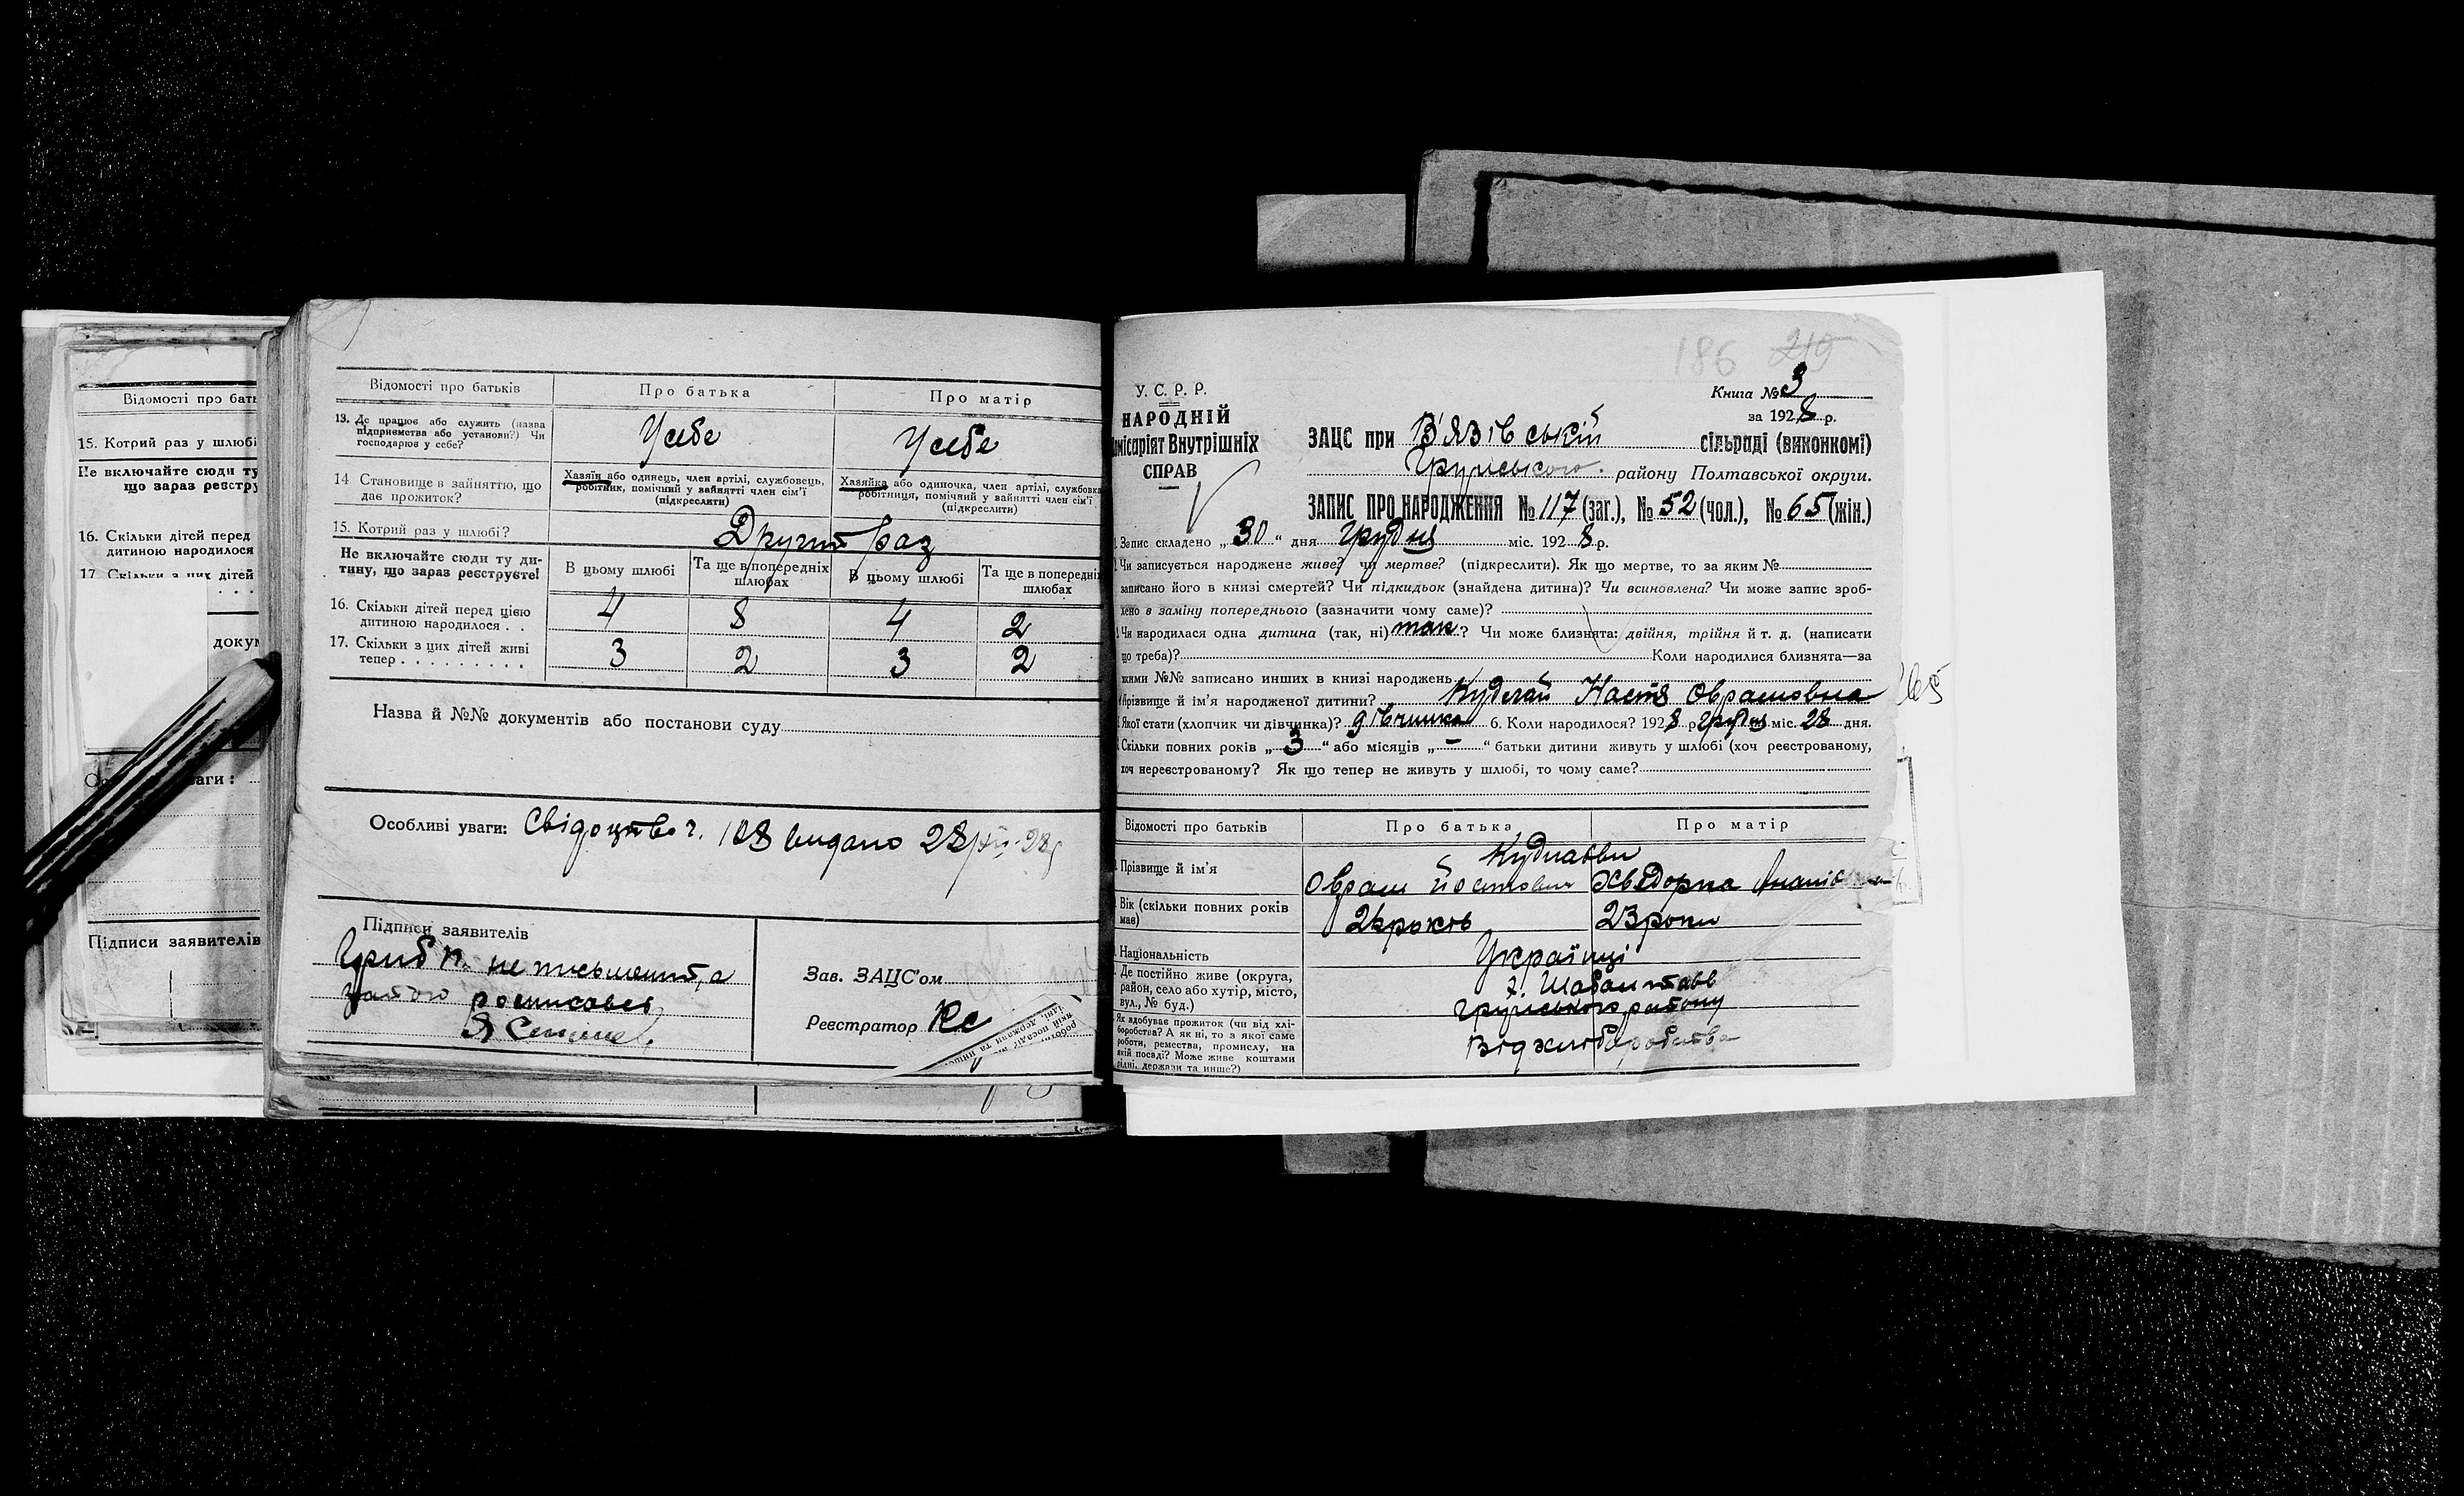 Відомості про бать
15. Котрий раз у шлюбі
Не включайте сюди ту
що зараз реєстру
16. Скільки дітей перед
дитиною народилося
17. Скільки з цих дітей
докум
ваги:
Підписи заявителів
Відомості про батьків
Про батька
Про матір
13. Де працює або служить (назва підприємства або установи?) Чи господарює у себе?
У себе
У себе
14 Становище в зайняттю, що дає прожиток?
Хазяїн або одинець, член артілі, службовець, робітник, помічний у зайнятті член сім'ї (підкреслити)
Хазяйка або одиночка, член артілі, службовка робітниця, помічний у зайнятті член сім'ї (підкреслити)
15. Котрий раз у шлюбі?
Другий раз
Не включайте сюди ту дитину, що зараз реєструєте!
В цьому шлюбі
Та ще в попередніх шлюбах
В цьому шлюбі
Та ще в попередніх шлюбах
16. Скільки дітей перед цією дитиною народилося . .
4 8 4 2
17. Скільки з цих дітей живі тепер . . . . . . . . . .
3 2 3 2
Назва й №№ документів або постанови суду
Особливі уваги: Свідоцтво ч. 108 видано 28/XII-28р
Підписи заявителів
Гриб П. не письменний, а
за його росписався
Зав. ЗАЦС'ом
Реєстратор
186 219
У. С. Р. Р.
НАРОДНІЙ
омісаріят Внутрішніх
СПРАВ
Книга № 3
за 1928 р.
ЗАЦС при Вязівській сільраді (виконкомі)
Грунського району Полтавської округи.
ЗАПИС ПРО НАРОДЖЕННЯ № 117 (заг.), № 52 (чол.), № 65 (жін.)
Запис складено „30“ дня грудня міс. 1928 р.
Чи записується народжене живе? чи мертве? (підкреслити). Як що мертве, то за яким №
записано його в книзі смертей? Чи підкидьок (знайдена дитина)? Чи всиновлена? Чи може запис зроб-
лено в заміну попереднього (зазначити чому саме)?
Чи народилася одна дитина (так, ні) так? Чи може близнята: двійня, трійня й т. д. (написати
що треба)? Коли народилися близнята—за
якими №№ записано инших в книзі народжень
Прізвище й ім'я народженої дитини? Кудлай Настя Оврамовна
Якої стати (хлопчик чи дівчинка)? дівчинка 6. Коли народилося? 1928 р. грудня міс. 28 дня.
Скільки повних років „3“ або місяців „-“ батьки дитини живуть у шлюбі (хоч реєстрованому,
хоч нереєстрованому? Як що тепер не живуть у шлюбі, то чому саме?
65
Відомості про батьків
Про батька
Про матір
Прізвище й ім'я
Оврам
Хведорка
Вік (скільки повних років має)
23 роки
Національність
Українці
Де постійно живе (округа, район, село або хутір, місто, вул., № буд.)
Грунського району
Як здобуває прожиток (чи від хліборобства? А як ні, то з якої саме роботи, ремества, промислу, на якій посаді? Може живе коштами рідні, держави та инше?)
Від хлібаробства